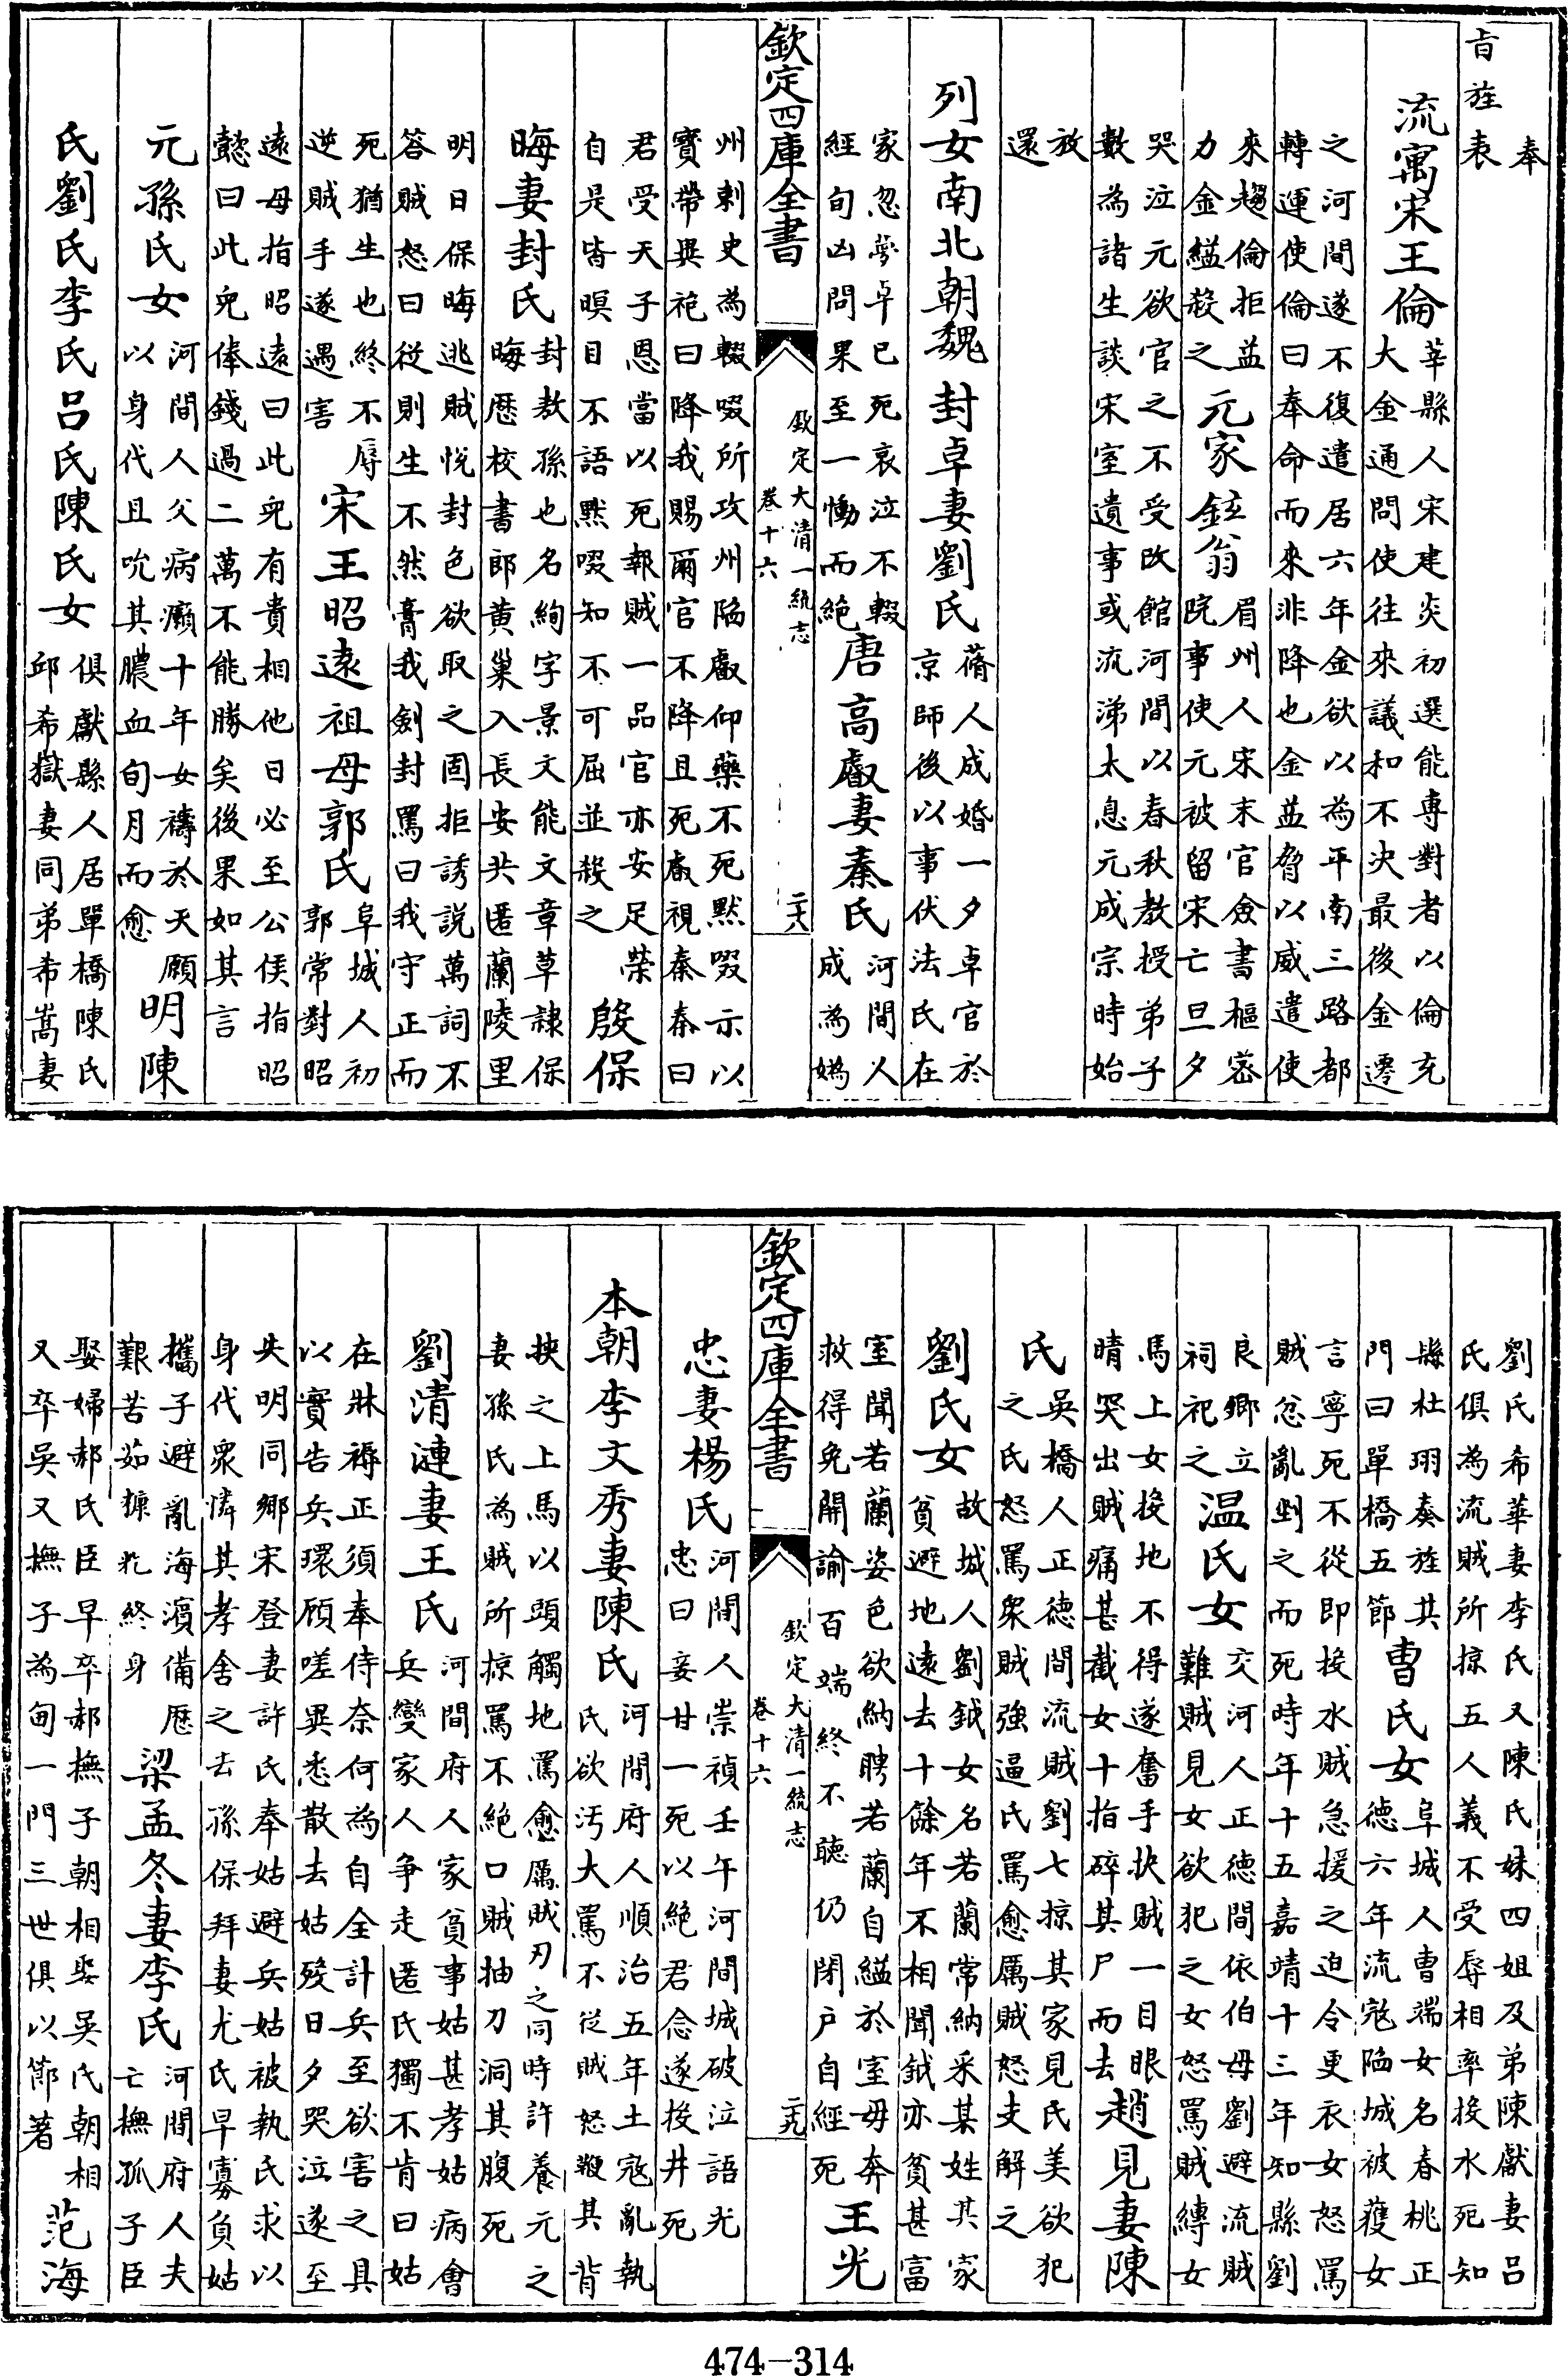 奉
旨旌表
流寓宋王倫
莘縣人宋建炎初選能專對者以倫充
大金通問使往來議和不決最後金遷
之河間遂不復遣居六年金欲以為平南三路都
轉運使倫曰奉命而來非降也金益脅以威遣使
來趨倫拒益
力金縊殺之
元家鉉翁
眉州人宋末官僉書樞密
院事使元被留宋亡旦夕
哭泣元欲官之不受改館河間以春秋教授弟子
數為諸生談宋室遺事或流涕太息元成宗時始
放
還
列女南北朝魏封卓妻劉氏
蓨人成婚一夕卓官於
京師後以事伏法氏在
家忽夢卓已死哀泣不輟
經旬凶問果至一慟而絶
唐高叡妻秦氏
河間人
成為媯
欽定四庫全書
欽定大清一統志
卷十六
二六
州刺史為輟啜所攻州陷叡仰藥不死默啜示以
寳帶與袍曰降我賜爾官不降且死叡視秦秦曰
君受天子恩當以死報賊一品官亦安足榮
自是皆瞑目不語默啜知不可屈並殺之
殷保
晦妻封氏
封敖孫也名絢字景文能文章草隸保
晦歴校書郎黄巢入長安共匿蘭陵里
明日保晦逃賊悅封色欲取之固拒誘説萬詞不
答賊怒曰從則生不然膏我劍封罵曰我守正而
死猶生也終不辱
逆賊手遂遇害
宋王昭遠祖母郭氏
阜城人初
郭常對昭
遠母指昭遠曰此兒有貴相他日必至公侯指昭
懿曰此兒俸錢過二萬不能勝矣後果如其言
元孫氏女
河間人父病癩十年女禱於天願
以身代且吮其膿血旬月而愈
明陳
氏劉氏李氏呂氏陳氏女
俱獻縣人居單橋陳氏
邱希嶽妻同弟希嵩妻
劉氏希華妻李氏又陳氏妹四姐及弟陳獻妻呂
氏俱為流賊所掠五人義不受辱相率投水死知
縣杜珝奏旌其
門曰單橋五節
曹氏女
阜城人曹端女名春桃正
德六年流宼陷城被獲女
言寧死不從即投水賊急援之迫令更衣女怒罵
賊忿亂剉之而死時年十五嘉靖十三年知縣劉
良卿立
祠祀之
温氏女
交河人正德間依伯母劉避流賊
難賊見女欲犯之女怒罵賊縛女
馬上女投地不得遂奮手抉賊一目眼
睛哭出賊痛甚截女十指碎其尸而去
趙見妻陳
氏
吳橋人正德間流賊劉七掠其家見氏美欲犯
之氏怒罵衆賊強逼氏罵愈厲賊怒支解之
劉氏女
故城人劉鉞女名若蘭常納采某姓其家
貧避地遠去十餘年不相聞鉞亦貧甚富
室聞若蘭姿色欲納聘若蘭自縊於室毋奔
救得免開諭百端終不聽仍閉戶自經死
王光
欽定四庫全書
欽定大清一統志
卷十六
二九
忠妻楊氏
河間人崇禎壬午河間城破泣語光
忠曰妾甘一死以絶君念遂投井死
本朝李文秀妻陳氏
河間府人順治五年土宼亂執
氏欲汚大罵不從賊怒鞭其背
挾之上馬以頭觸地罵愈厲賊刃之同時許養元之
妻孫氏為賊所掠罵不絶口賊抽刀洞其腹死
劉清漣妻王氏
河間府人家貧事姑甚孝姑病會
兵變家人争走匿氏獨不肯曰姑
在牀褥正須奉侍奈何為自全計兵至欲害之具
以實告兵環顧嗟異悉散去姑歿日夕哭泣遂至
失明同鄉宋登妻許氏奉姑避兵姑被執氏求以
身代衆憐其孝舍之去孫保拜妻尤氏早寡負姑
攜子避亂海濱備歴
艱苦茹糠粃終身
梁孟冬妻李氏
河間府人夫
亡撫孤子臣
娶婦郝氏臣早卒郝撫子朝相娶吳氏朝相
又卒吳又撫子為甸一門三世俱以節著
范海
474-314